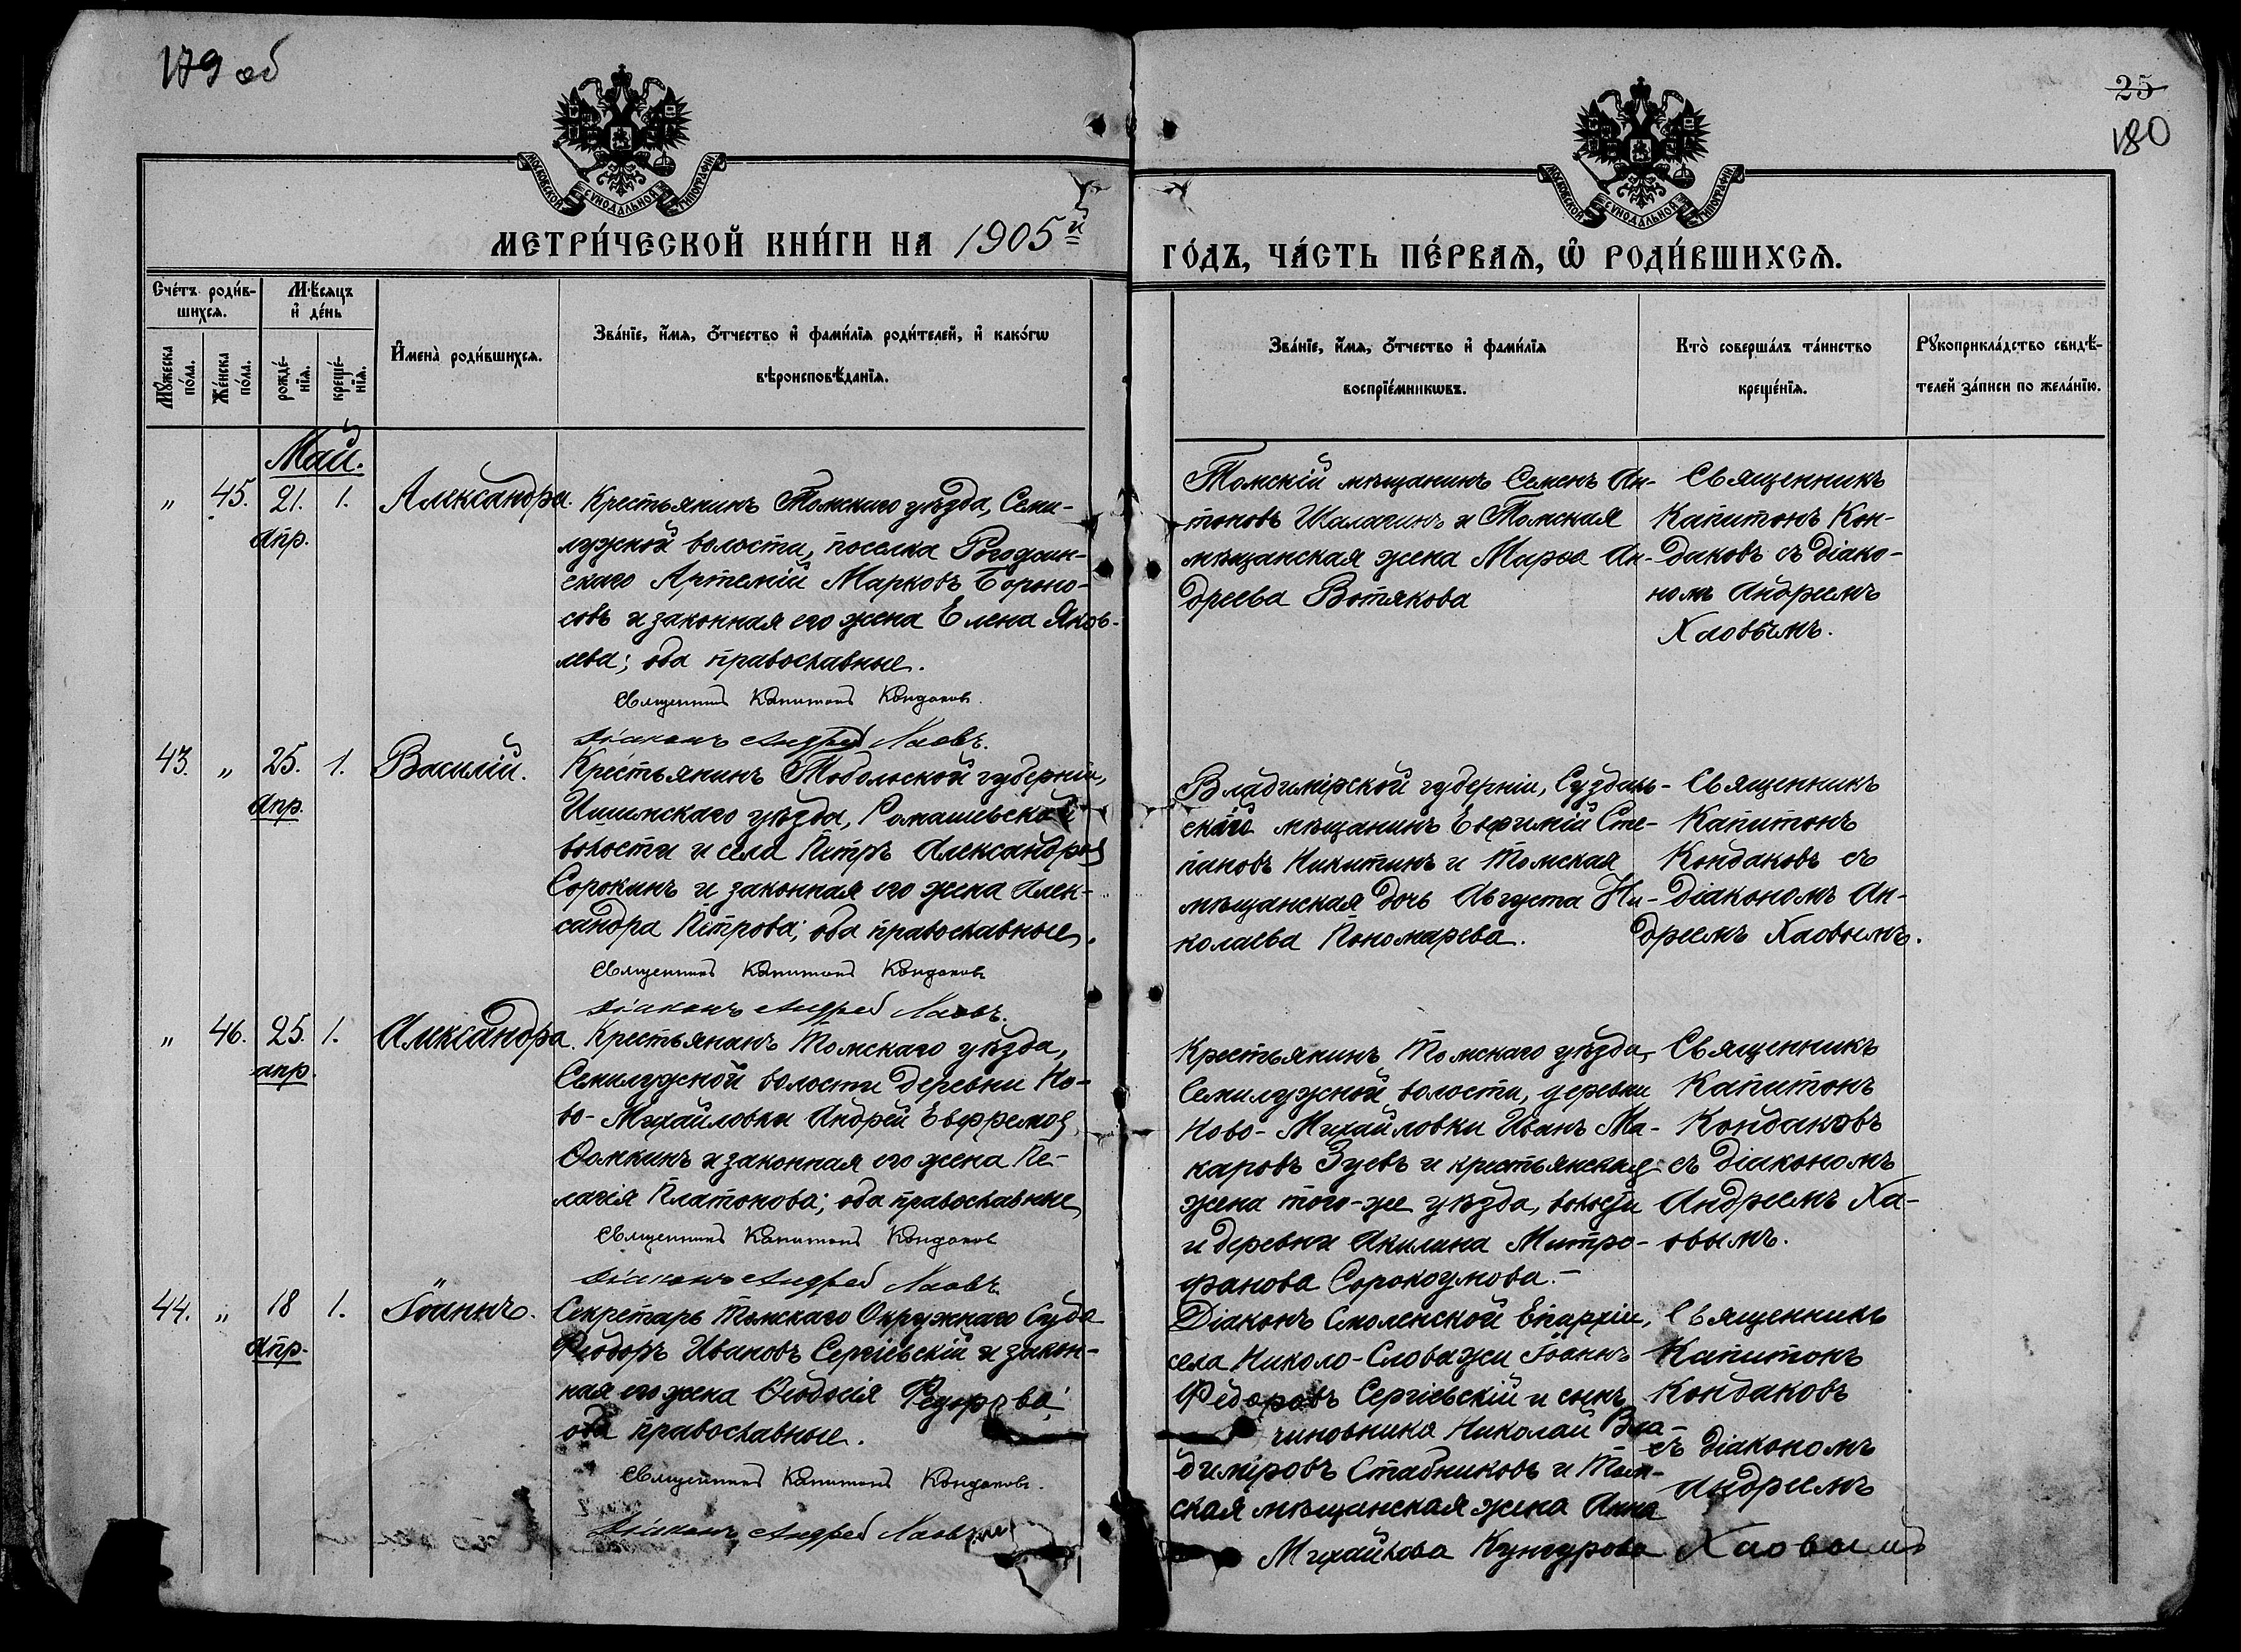 179 об
25
180
МОСКОВСКОЙ СѴНОДАЛЬНОЙ ТИПОГРАФІИ
МОСКОВСКОЙ СѴНОДАЛЬНОЙ ТИПОГРАФІИ
МЕТРИ́ЧЕСКОЙ КНИ́ГИ НА 1905й
ГО́ДЪ, ЧА́СТЬ ПЕ́РВАѦ, Ѡ҆ РОДИ́ВШИХСѦ.
Сче́тъ роди́в-
шихсѧ.
Мѣ́сѧцъ
и҆ де́нь
Мꙋ́жеска
по́ла.
Же́нска
по́ла.
рожде́-
нїѧ.
креще́-
нїѧ.
И҆мена̀ роди́вшихсѧ.
Зва́нїе, и҆́мѧ, ѻ҆́тчество и҆ фами́лїѧ роди́телей, и҆ како́гѡ
вѣроисповѣ́данїѧ.
Зва́нїе, и҆́мѧ, ѻ҆́тчество и҆ фами́лїѧ
воспрїе́мникѡвъ.
Кто̀ соверша́лъ та́инство
креще́нїѧ.
Рꙋкоприкла́дство свидѣ́-
телей за́писи по жела́нїю.
Май.
„ 45. 21. 1. Александра.
Апр.
Крестьянинъ Томскаго уѣзда, Семи-
лужной волости, поселка Рогожин-
скаго Артемій Марковъ Бороно-
совъ и законная его жена Елена Яков-
лева; оба православные.
Священникъ Капитонъ Кондаковъ.
Діаконъ Андрей Хаовъ.
Томскій мѣщанинъ Семенъ Ан-
тоновъ Шалагинъ и Томская
мѣщанская жена Марѳа Ан-
дреева Вотякова
Священникъ
Капитонъ Кон-
даковъ съ діако-
номъ Андреемъ
Хаовымъ.
43. „ 25. 1. Василій.
Апр.
Крестьянинъ Тобольской губерніи,
Ишимскаго уѣзда, Ромашевской
волости и села Петръ Александровъ
Сорокинъ и законная его жена Алек-
сандра Петрова; оба православные.
Священникъ Капитонъ Кондаковъ
Діаконъ Андрей Хаовъ.
Владимірской губерніи, Суздаль-
скаго мѣщанинъ Евфимій Сте-
пановъ Никитинъ и Томская
мѣщанская дочь Августа Ни-
колаева Пономарева.
Священникъ
Капитонъ
Кондаковъ съ
діакономъ Ан-
дреемъ Хаовымъ.
„ 46. 25. 1. Александра.
апр.
Крестьянинъ Томскаго уѣзда,
Семилужной волости деревни Но-
во-Михайловки Андрей Евфремовъ
Ѳомкинъ и законная его жена Пе-
лагія Платонова; оба православные
Священникъ Капитонъ Кондаковъ
Діаконъ Андрей Хаовъ.
Крестьянинъ Томскаго уѣзда,
Семилужной волости, деревни
Ново-Михайловки Иванъ Ма-
каровъ Зуевъ и крестьянская
жена того-же уѣзда, волости
и деревни Акилина Митро-
фанова Сорокоумова.-
Священникъ
Капитонъ
Кондаковъ
съ діакономъ
Андреемъ Ха-
овымъ.
44. „ 18 1. Іоаннъ.
Апр.
Секретарь Томскаго Окружнаго Суда
Ѳеодоръ Ивановъ Сергіевскій и закон-
ная его жена Ѳеодосія Федорова;
оба православные.
Священникъ Капитонъ Кондаковъ.
Діаконъ Андрей Хаовъ
Діаконъ Смоленской Епархіи,
села Николо-Словажи Іоаннъ
Федоровъ Сергіевскій и сынъ
чиновника Николай Вла-
диміровъ Стабниковъ и Том-
ская мѣщанская жена Анна
Михайлова Кунгурова
Священникъ
Капитонъ
Кондаковъ
съ діакономъ
Андреемъ
Хаовымъ